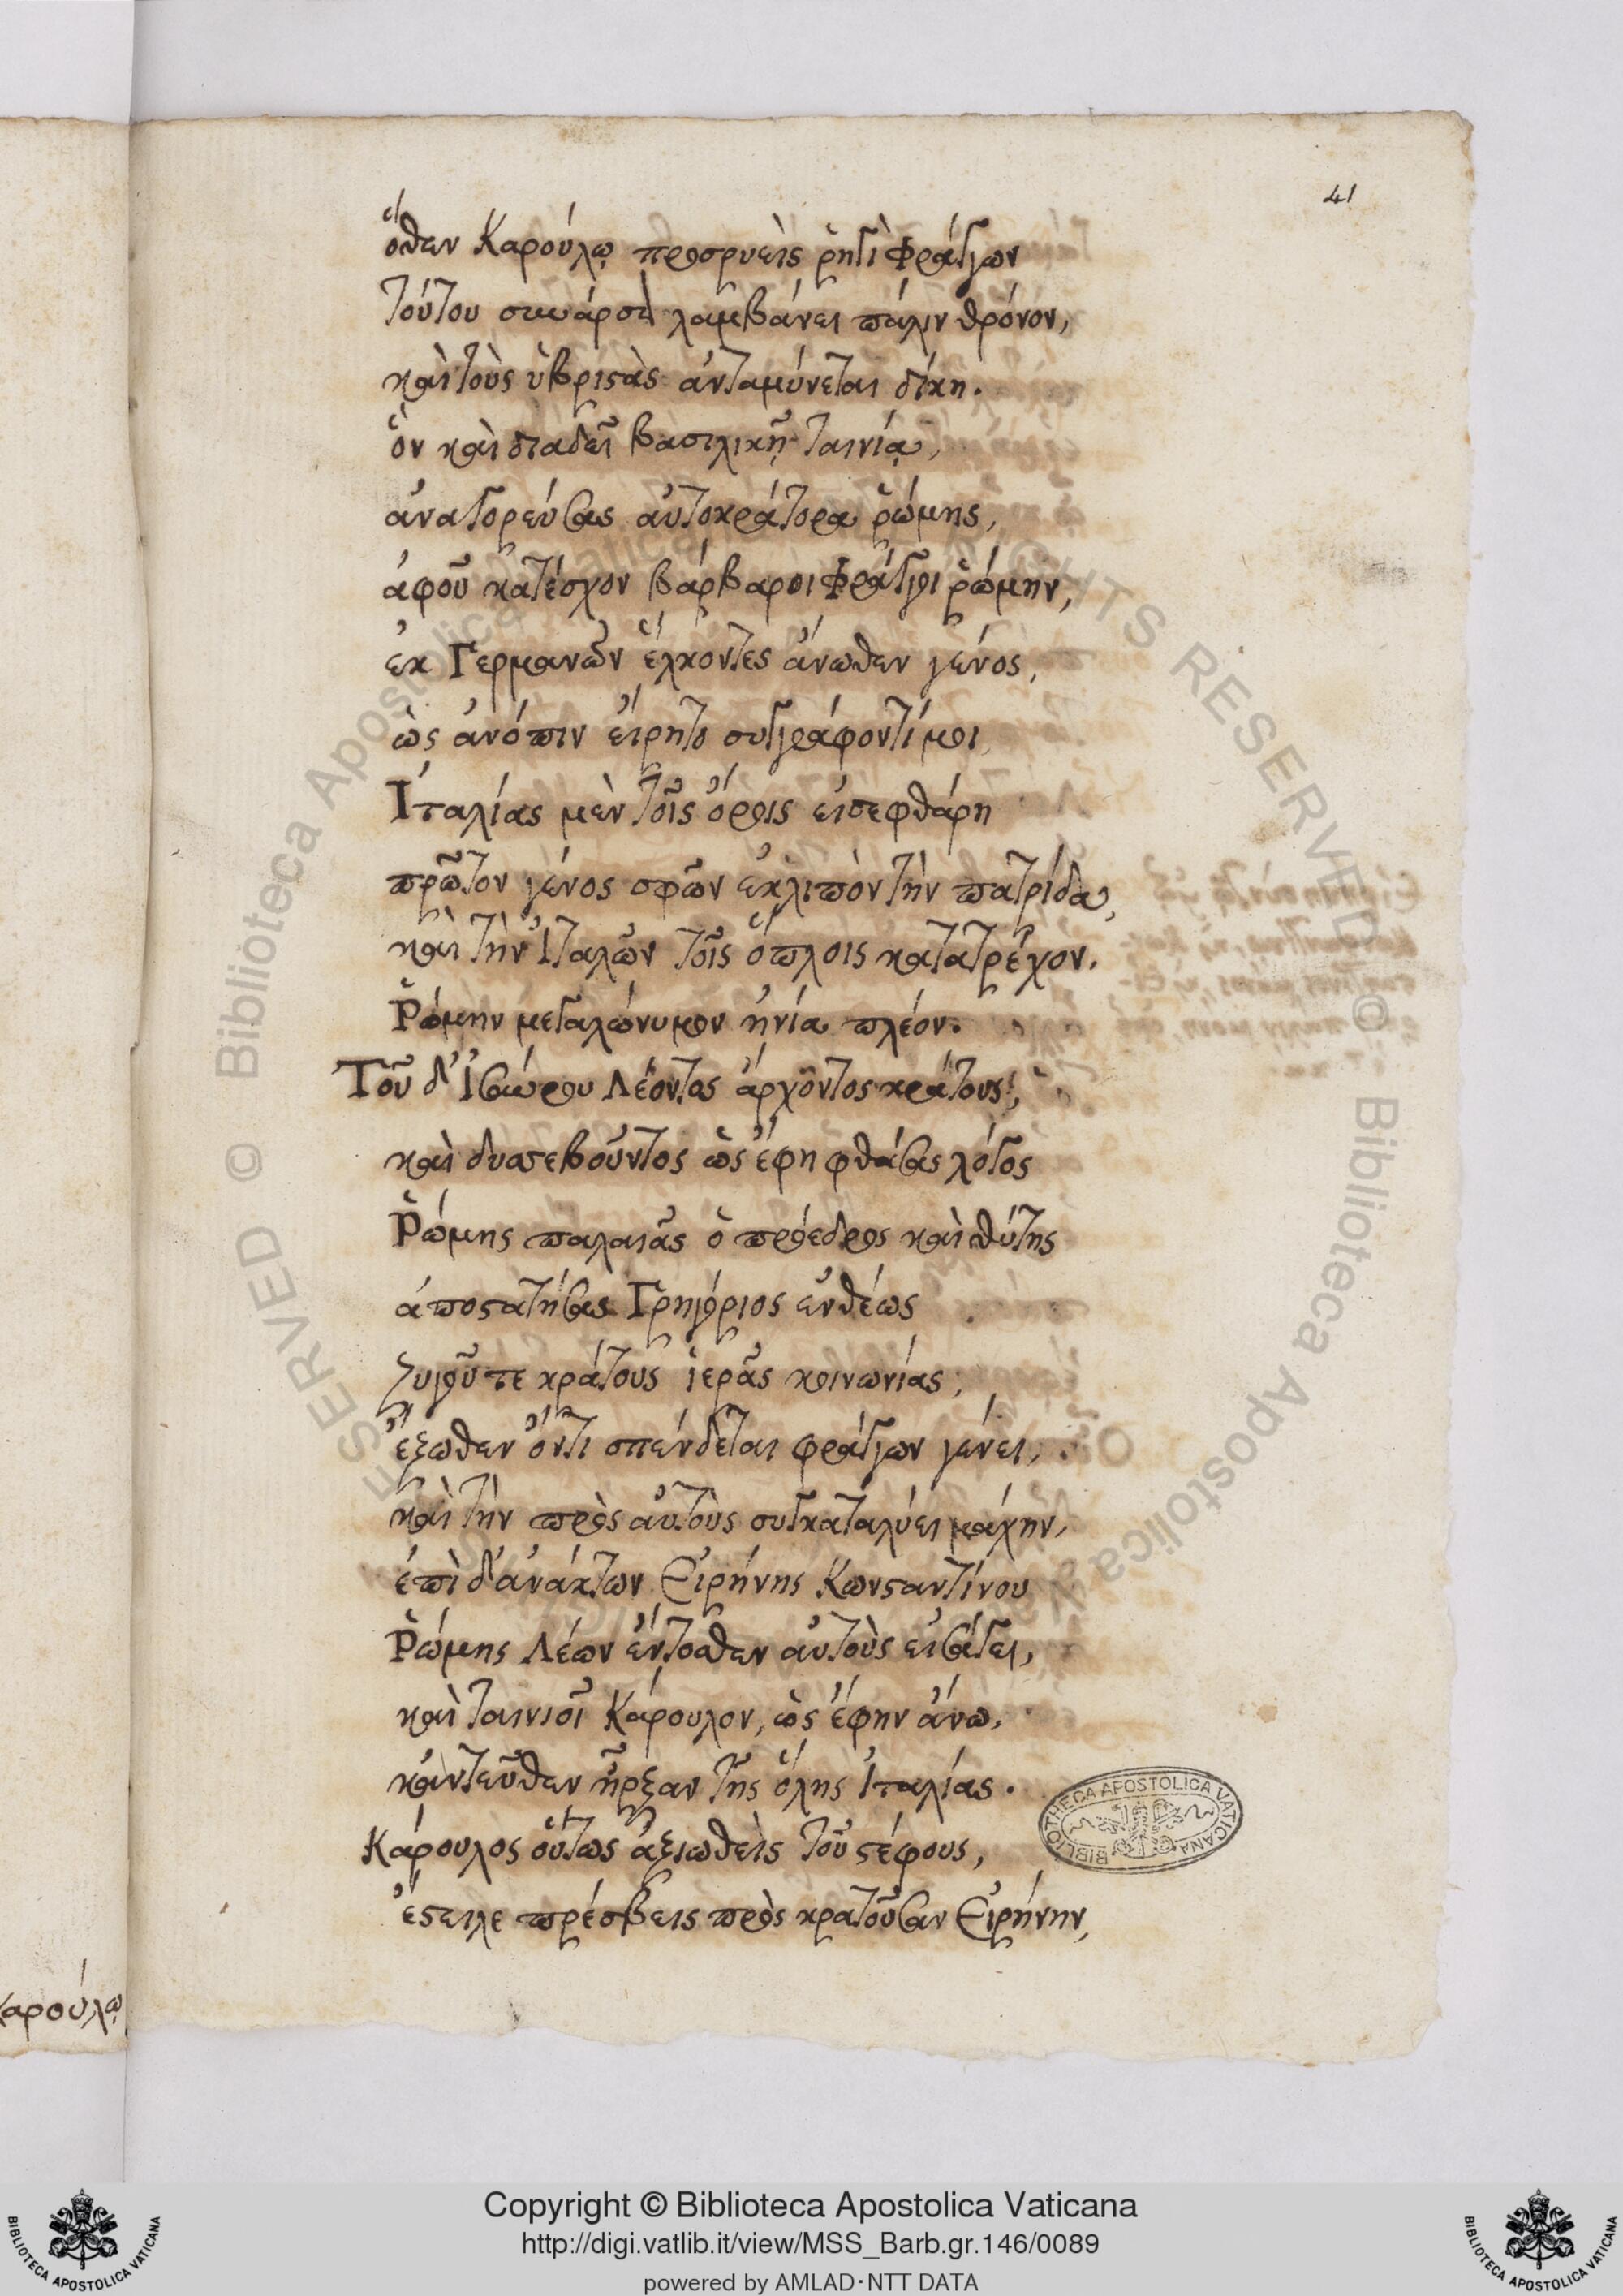 41
ὅθεν Καρούλῳ προσρυεὶς ῥηγὶ Φράγγων
τούτου συνάρσει λαμβάνει πάλιν θρόνον,
καὶ τοὺς ὑβριστὰς ἀνταμύνεται δίκῃ.
ὃν καὶ διαδεῖ βασιλικῇ ταινίᾳ,
ἀναγορεύσας αὐτοκράτορα ῥώμης,
ἀφοῦ κατέσχον βάρβαροι Φράγγοι ῥώμην,
ἐκ Γερμανῶν ἕλκοντες ἄνωθεν γένος,
ὡς ἀνόπιν εἴρητο συγγράφοντί μοι
Ἰταλίας μὲν τοῖς ὄροις εἰσεφθάρη
πρῶτον γένος σφῶν ἐκλιπὸν τὴν πατρίδα,
καὶ τὴν Ἰταλῶν τοῖς ὅπλοις κατατρέχον.
Ῥώμην μεγαλώνυμον ἠνία πλέον.
Τοῦ δ' Ἰσαύρου Λέοντος ἄρχοντος κράτους,
καὶ δυσσεβοῦντος ὡς ἔφη φθάσας λόγος
Ῥώμης παλαιᾶς ὁ πρόεδρος καὶ θύτης
ἀποστατήσας Γρηγόριος ἐνθέως
ζυγοῦ τε κράτους ἱερᾶς κοινωνίας,
ἔξωθεν ὄντι σπένδεται φράγγων γένει,
καὶ τὴν πρὸς αὐτοὺς συγκαταλύει μάχην,
ἐπὶ δ' ἀνάκτων Εἰρήνης Κωνσταντίνου
Ῥώμης Λέων ἔντοσθεν αὐτοὺς εἰσάγει,
καὶ ταινιοῖ Κάρουλον, ὡς ἔφην ἄνω,
κἀντεῦθεν ἦρξαν τῆς ὅλης Ἰταλίας.
Κάρουλος οὕτως ἀξιωθεὶς τοῦ στέφους,
ἔστειλε πρέσβεις πρὸς κρατοῦσαν Εἰρήνην,
Καρούλῳ
BIBLIOTHECA APOSTOLICA VATICANA
Copyright © Biblioteca Apostolica Vaticana
http://digi.vatlib.it/view/MSS_Barb.gr.146/0089
powered by AMLAD·NTT DATA